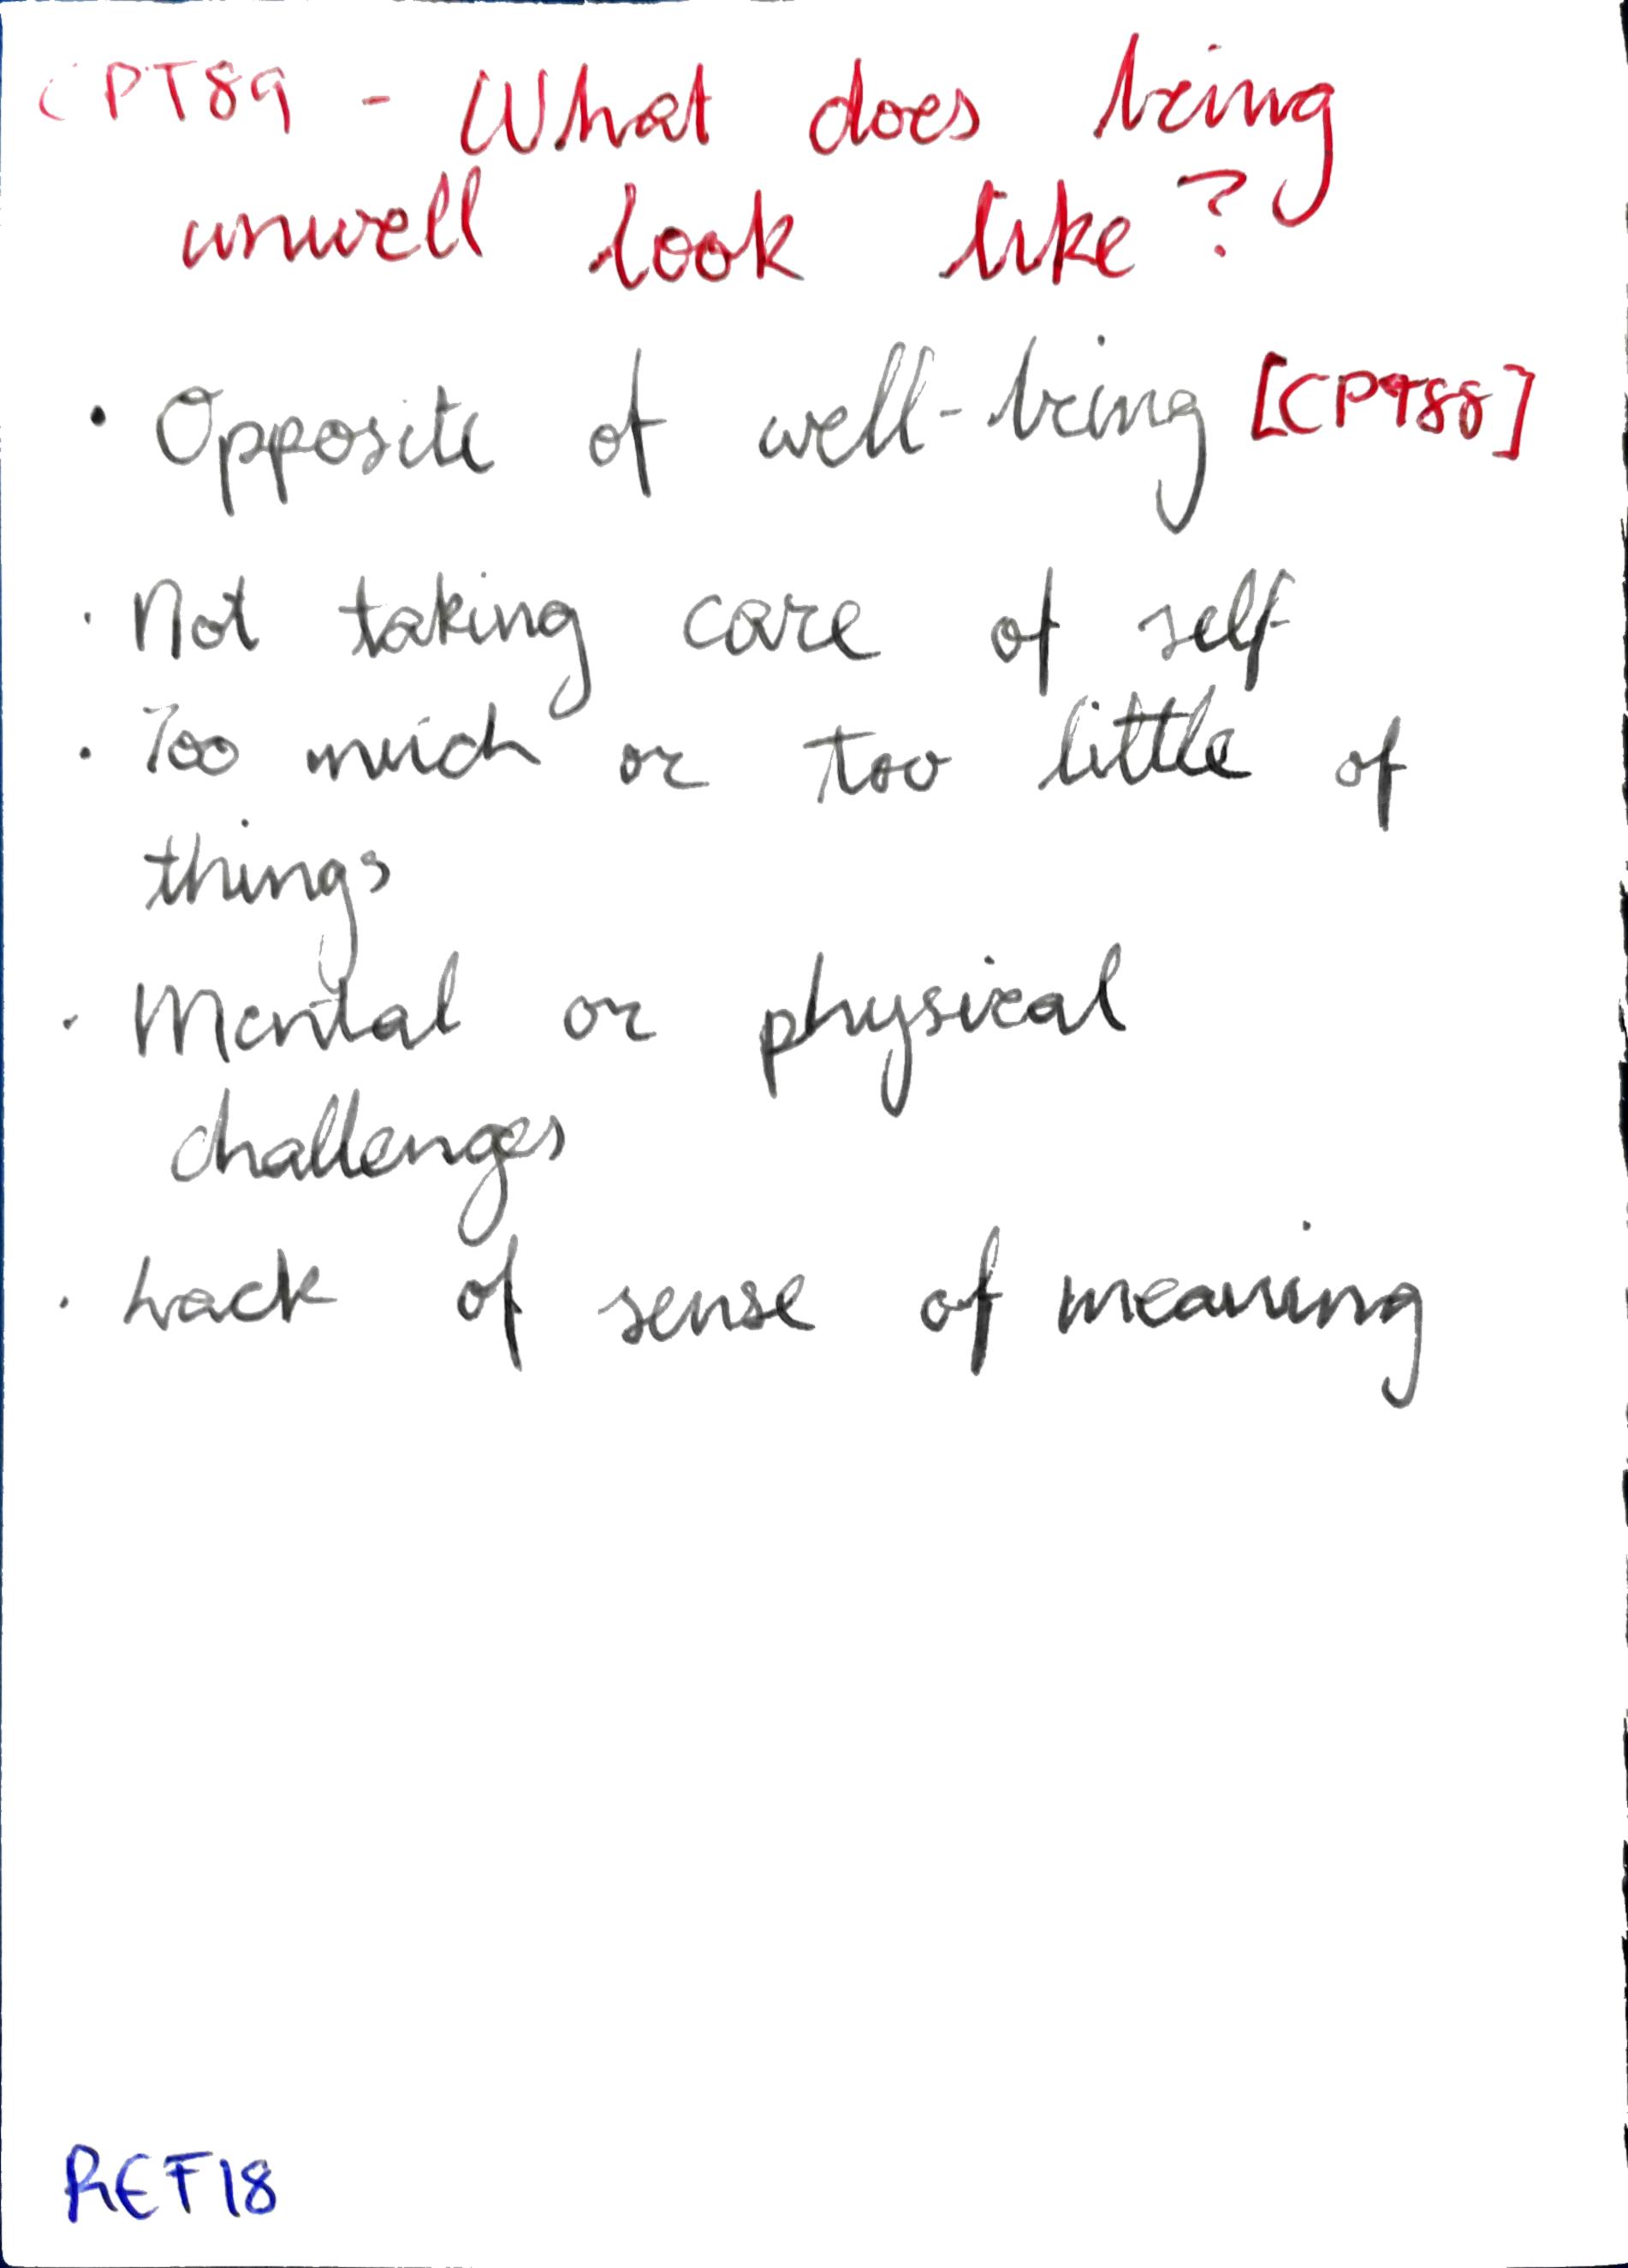 CPT89 - What does being
unwell look like?
• Opposite of well-being [CPT88]
• Not taking care of self
• Too much or too little of
things
• Mental or physical
challenges
• Lack of sense of meaning
REF18